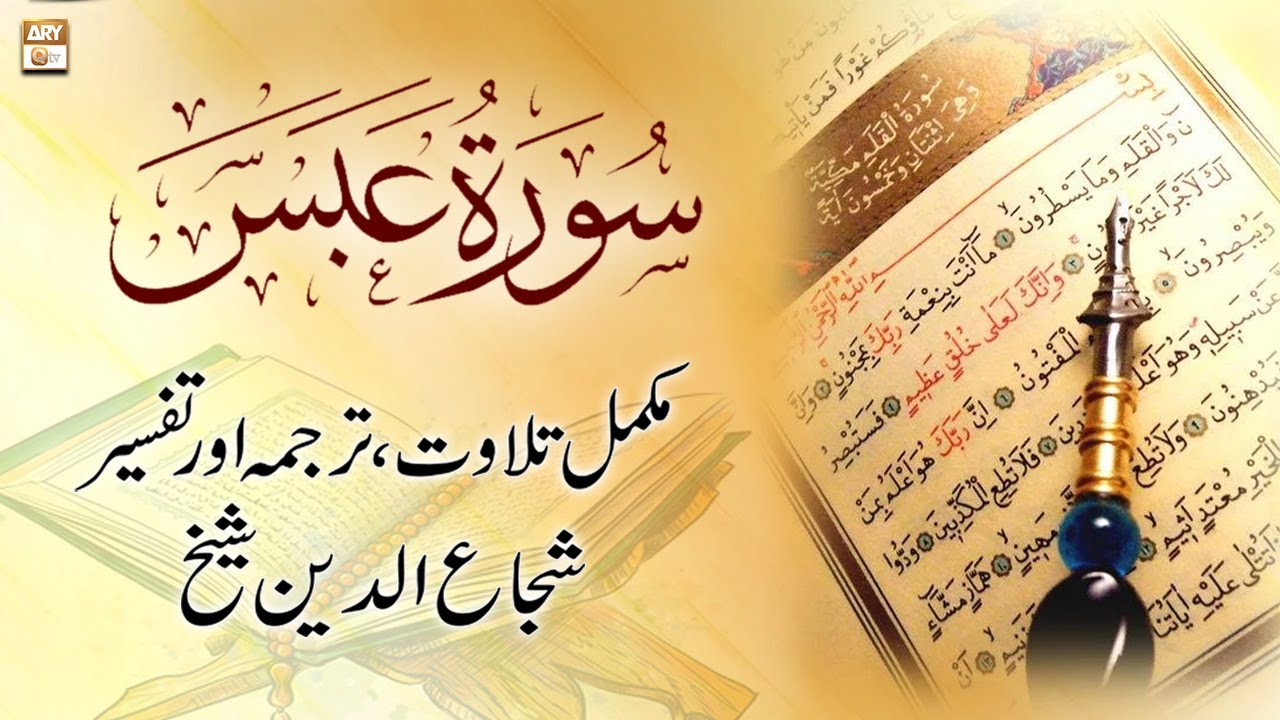 ARY
Qtv
سُورَةُ عَبَسَ
مکمل تلاوت، ترجمہ اور تفسیر
شجاع الدین شیخ
سُورَةُ الْقَلَمِ مَكِّيَّةٌ
وَهِيَ اِثْنَتَانِ وَخَمْسُونَ اٰيَةً
نٓ وَالْقَلَمِ وَمَا يَسْطُرُونَ ۙ ١ مَٓا اَنْتَ بِنِعْمَةِ رَبِّكَ بِمَجْنُونٍ ۚ ٢ وَاِنَّ
لَكَ لَاَجْرًا غَيْرَ ٣ وَاِنَّكَ لَعَلٰى خُلُقٍ عَظِيمٍ ٤ فَسَتُبْصِرُ
وَيُبْصِرُونَ ۙ ٥ الْمَفْتُونُ ٦ اِنَّ رَبَّكَ هُوَ اَعْلَمُ بِمَنْ
عَنْ سَبِيلِهٖ وَهُوَ اَعْلَمُ ٧ فَلَا تُطِعِ الْمُكَذِّبِينَ ٨ وَدُّوا
فَيُدْهِنُونَ ٩ وَلَا تُطِعْ مَهِينٍ ۙ ١٠ هَمَّازٍ مَشَّٓاءٍ
لِلْخَيْرِ مُعْتَدٍ اَثِيمٍ ۙ ١٢ زَنِيمٍ ۙ ١٣ اَنْ
تُتْلٰى عَلَيْهِ اٰيَاتُنَا